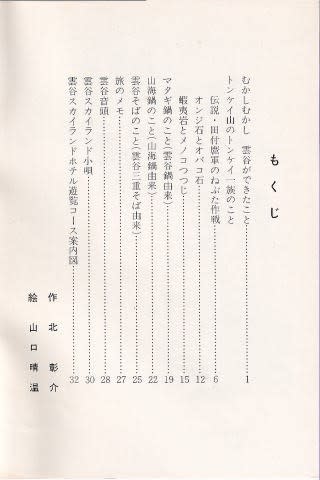 もくじ
むかしむかし 雲谷ができたこと……1
トンケイ山のトンケイ一族のこと
伝説・田付麿軍のねぶた作戦……6
オンジ石とオバコ石……12
蝦夷岩とメノコつつじ……15
マタギ鍋のこと(雲谷鍋由来)……19
山海鍋のこと(山海鍋由来)……22
雲谷そばのこと(雲谷三重そば由来)……25
旅のメモ……27
雲谷音頭……28
雲谷スカイランド小唄……30
雲谷スカイランドホテル遊覧コース案内図……32
作 北 彰介
絵 山口晴温